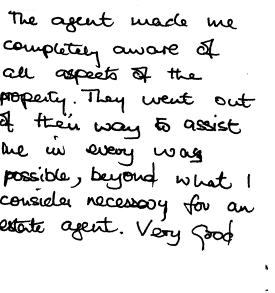 The agent made me
completely aware of
all aspects of the
property. They went out
of their way to assist
me in every way
possible, beyond what I
consider necessary for an
estate agent. Very Good